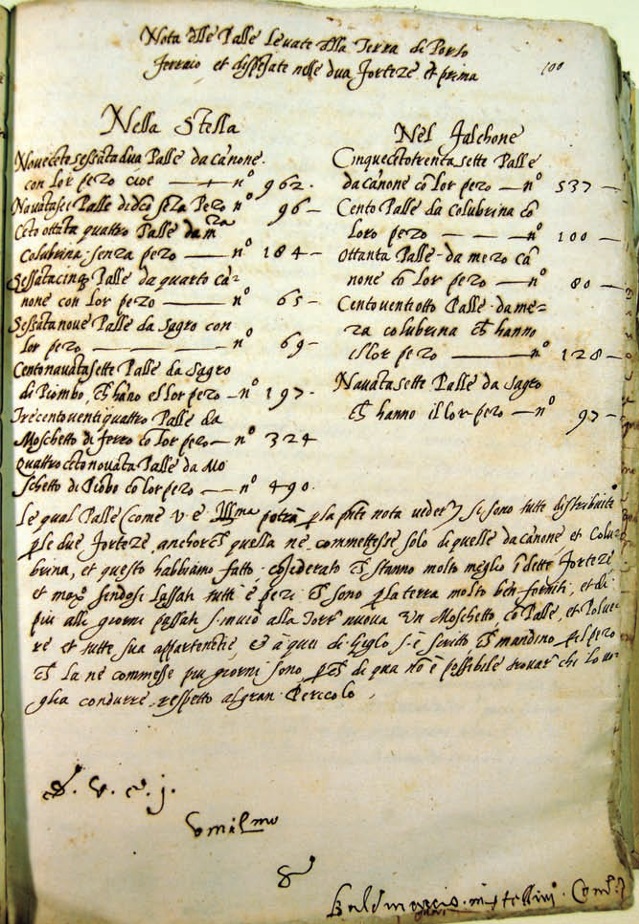 Nota dlle Palle levate dlla Terra di Porto
ferraio et dispesate nelle dua forteze et prima
100
Nella Stella
Novecetosessatadua Palle da canone
con lor pezo cioe n° 962.
Navatasei Palle di dco senza Pezo n° 96
Ceto ottata quattro Palle da mza
Colubrina senza pezo n° 184
Sessatacinq Palle da quarto ca
none con lor pezo n° 65
Sessatanove Palle da sagro con
lor pezo n° 69
Centonavatasette Palle da sagro
di Piombo, ch hano el lor pezo n° 197.
Trecentoventiquattro Palle da
Moschetto di ferro co lor pezo n° 324
Quattrocetonovata Palle da Mo
schetto di Piobo co lor pezo n° 490.
Nel falchone
Cinquecetotrenta sette Palle
da canone co lor pezo n° 537
Cento Palle da colubrina co
loro pezo n° 100
Ottanta Palle da mezo ca
none co lor pezo n° 80
Centoventiotto Palle da me=
za colubrina ch hanno
il lor pezo n° 128
Navatasette Palle da sagro
ch hanno il lor pezo n° 97
Le qual Palle (come v. e. Illma potra p la pnte nota veder) si sono tutte distribuite
p le due forteze anchor ch quella ne commettesse solo di quelle da canone et Colu
brina, et questo habbiamo fatto cosiderato ch stanno molto meglio i dette forteze
et max sendosi lassati tutti e pezi ch sono p la terra molto ben forniti, et di
piu alli giorni passati s mado alla Torr nuova un Moschetto, co Palle, et Polue
re et tutte sua appartenetie, et a quei di Giglo s e scritto ch mandino pel pezo
ch la ne commesse piu giorni sono, p ch di qua no e possibile trovar chi lo vo
glia condurre respetto al gran Pericolo.
D. v. e. j.
vmilmo
S